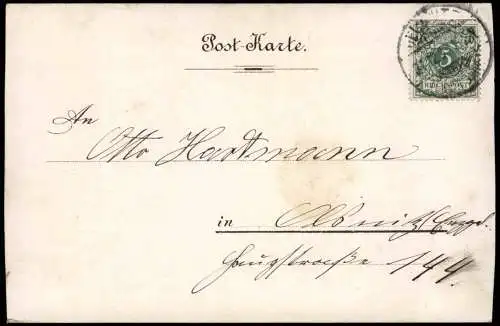 Post-Karte.
5
REICHSPOST
An
Otto Hartmann
in Oelsnitz Erzgeb.
Hauptstraße 144.